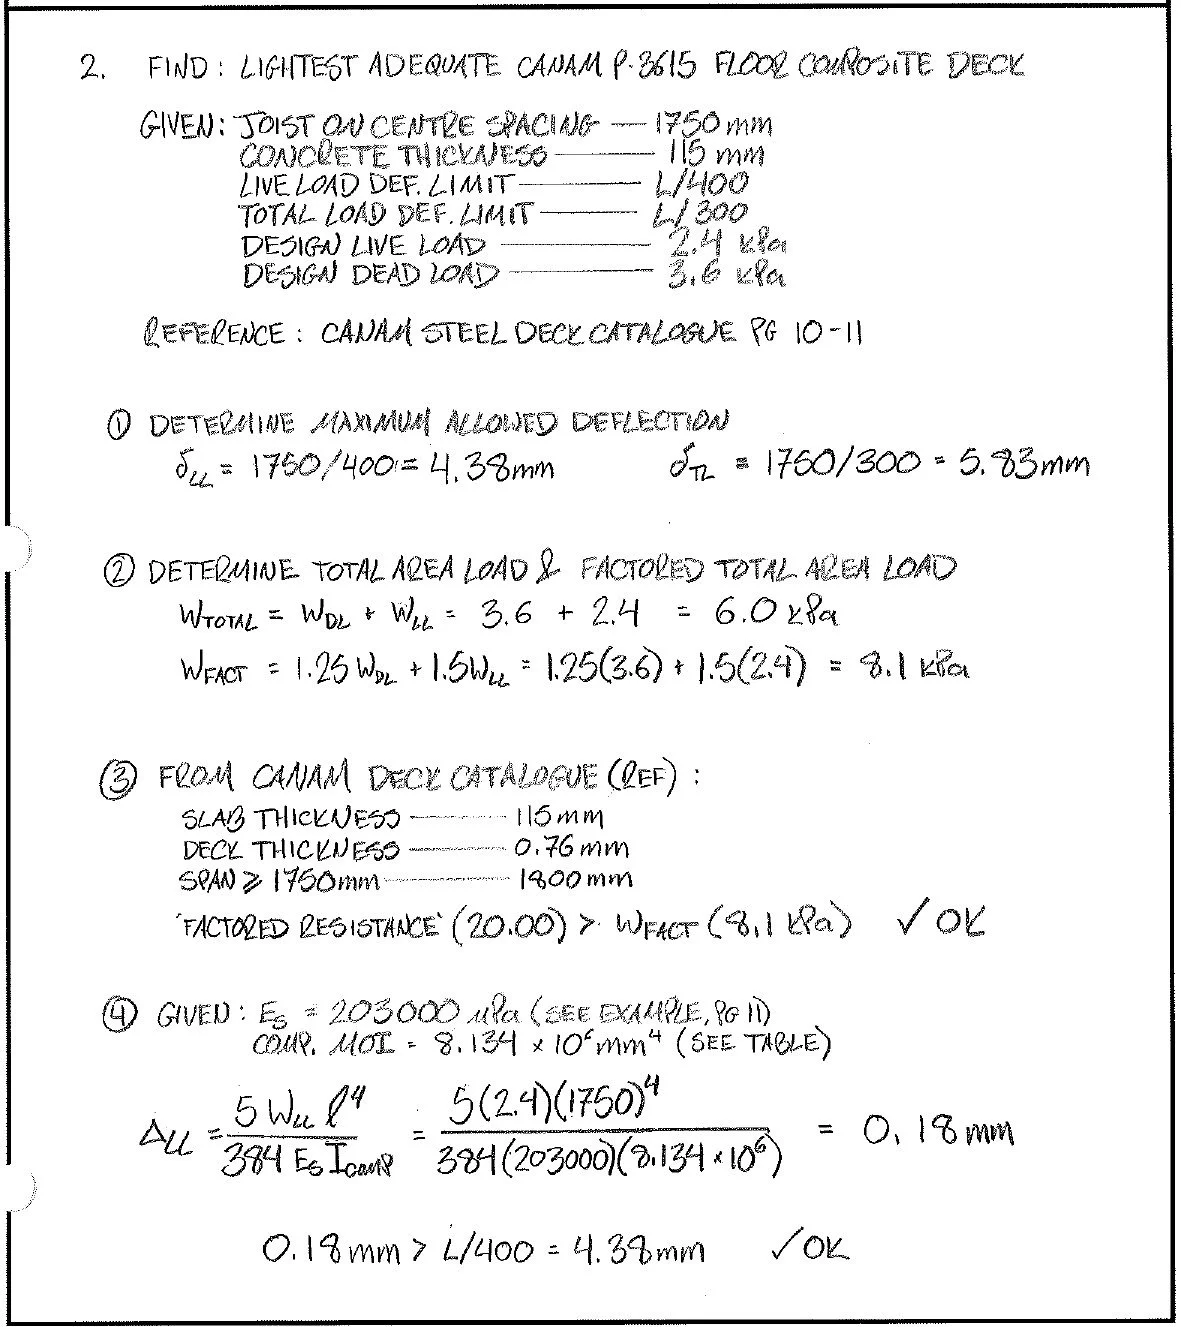 2. FIND: LIGHTEST ADEQUATE CANAM P-3615 FLOOR COMPOSITE DECK
GIVEN: JOIST ON CENTRE SPACING — 1750 mm
CONCRETE THICKNESS — 115 mm
LIVE LOAD DEF. LIMIT — L/400
TOTAL LOAD DEF. LIMIT — L/300
DESIGN LIVE LOAD — 2.4 kPa
DESIGN DEAD LOAD — 3.6 kPa
REFERENCE: CANAM STEEL DECK CATALOGUE PG 10-11
① DETERMINE MAXIMUM ALLOWED DEFLECTION
δLL = 1750/400 = 4.38mm δTL = 1750/300 = 5.83mm
② DETERMINE TOTAL AREA LOAD & FACTORED TOTAL AREA LOAD
WTOTAL = WDL + WLL = 3.6 + 2.4 = 6.0 kPa
WFACT = 1.25 WDL + 1.5WLL = 1.25(3.6) + 1.5(2.4) = 8.1 kPa
③ FROM CANAM DECK CATALOGUE (REF):
SLAB THICKNESS — 115mm
DECK THICKNESS — 0.76mm
SPAN ≥ 1750mm — 1800mm
'FACTORED RESISTANCE' (20.00) > WFACT (8.1 kPa) ✓ OK
④ GIVEN: ES = 203000 MPa (SEE EXAMPLE, PG 11)
COMP. MOI = 8.134 × 10⁶ mm⁴ (SEE TABLE)
ΔLL = 5 WLL l⁴ / 384 ES ICOMP = 5(2.4)(1750)⁴ / 384(203000)(8.134 × 10⁶) = 0.18mm
0.18mm > L/400 = 4.38mm ✓ OK